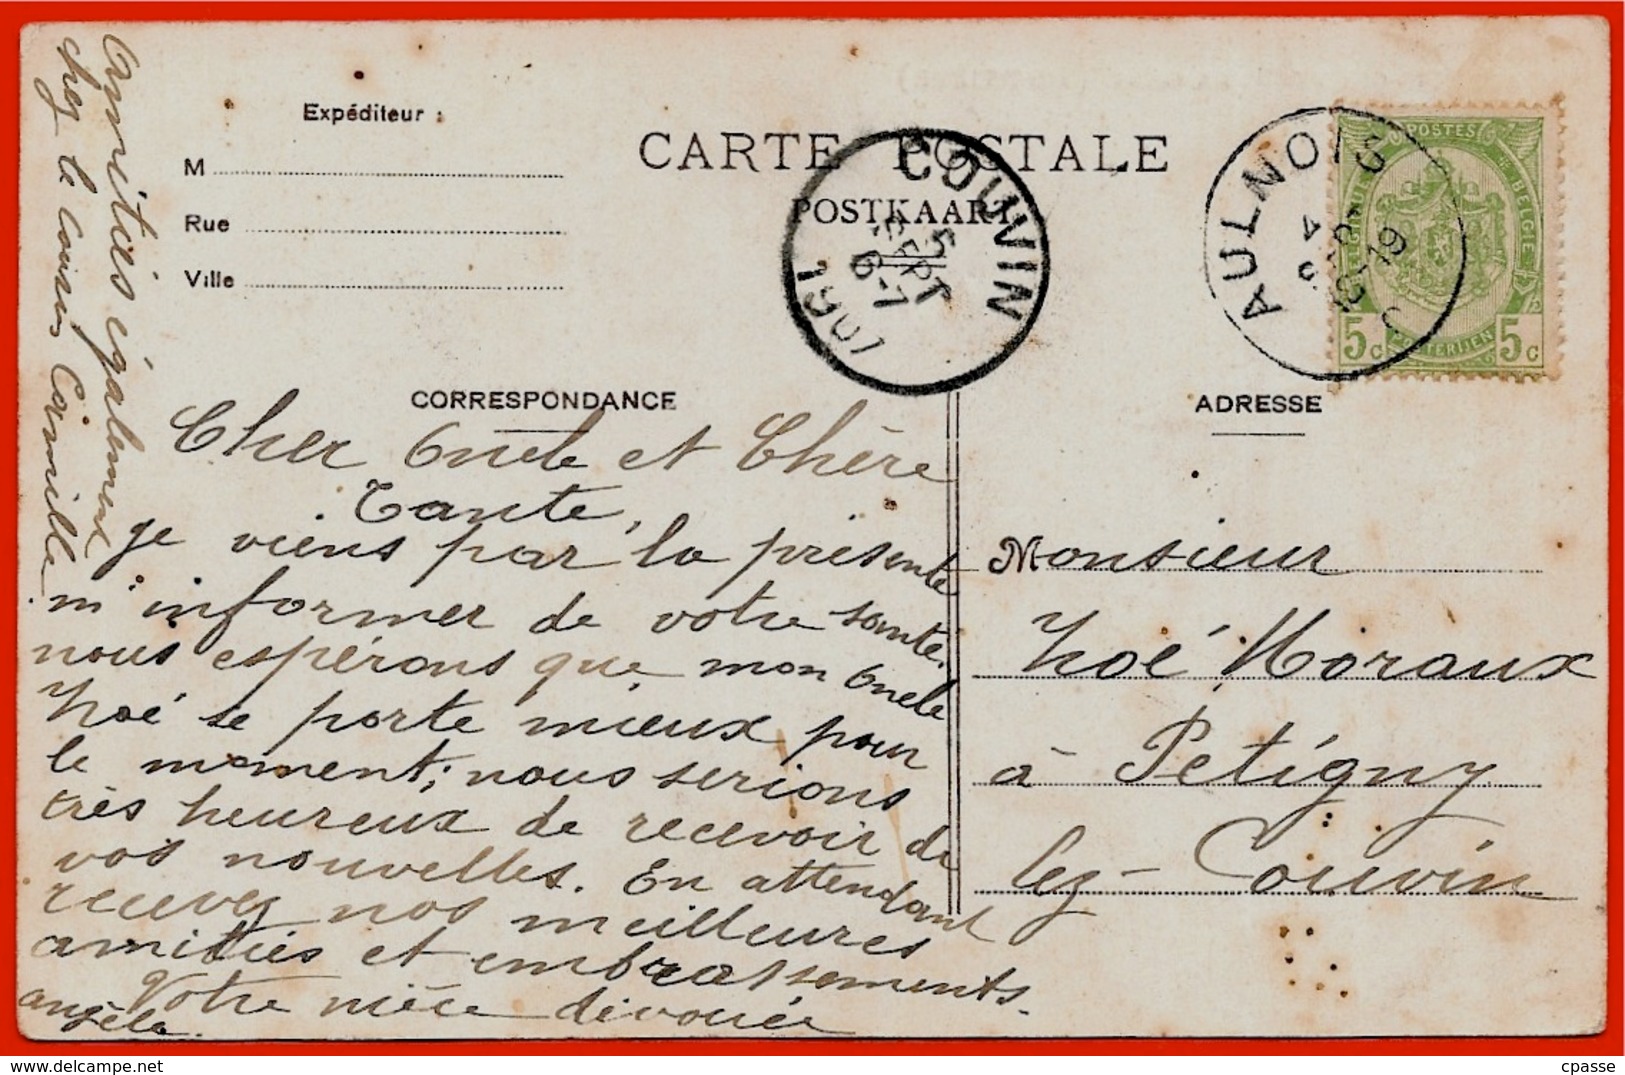 Amitiés également
chez le cousin Camille
Expéditeur :
M
Rue
Ville
CARTE POSTALE
POSTKAART
COUVIN
5
SEPT
6-7
1907
AULNOIS
4
SEPT
19
POSTES
BELGIQUE
BELGIË
5c
POSTERIJEN
5c
CORRESPONDANCE
Cher Oncle et Chère
Tante,
Je viens par la présente
m'informer de votre santé.
nous espérons que mon Oncle
Noé se porte mieux pour
le moment; nous serions
très heureux de recevoir de
vos nouvelles. En attendant
recevez nos meilleures
amitiés et embrassements.
Votre nièce dévouée
angèle.
ADRESSE
Monsieur
Noé Moraux
à Petigny
lez-Couvin
cpasse